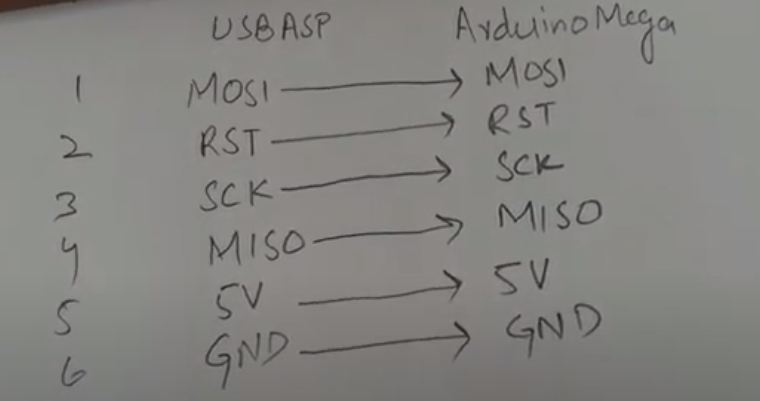 USBASP Arduino Mega
1 MOSI → MOSI
2 RST → RST
3 SCK → SCK
4 MISO → MISO
5 5V → 5V
6 GND → GND